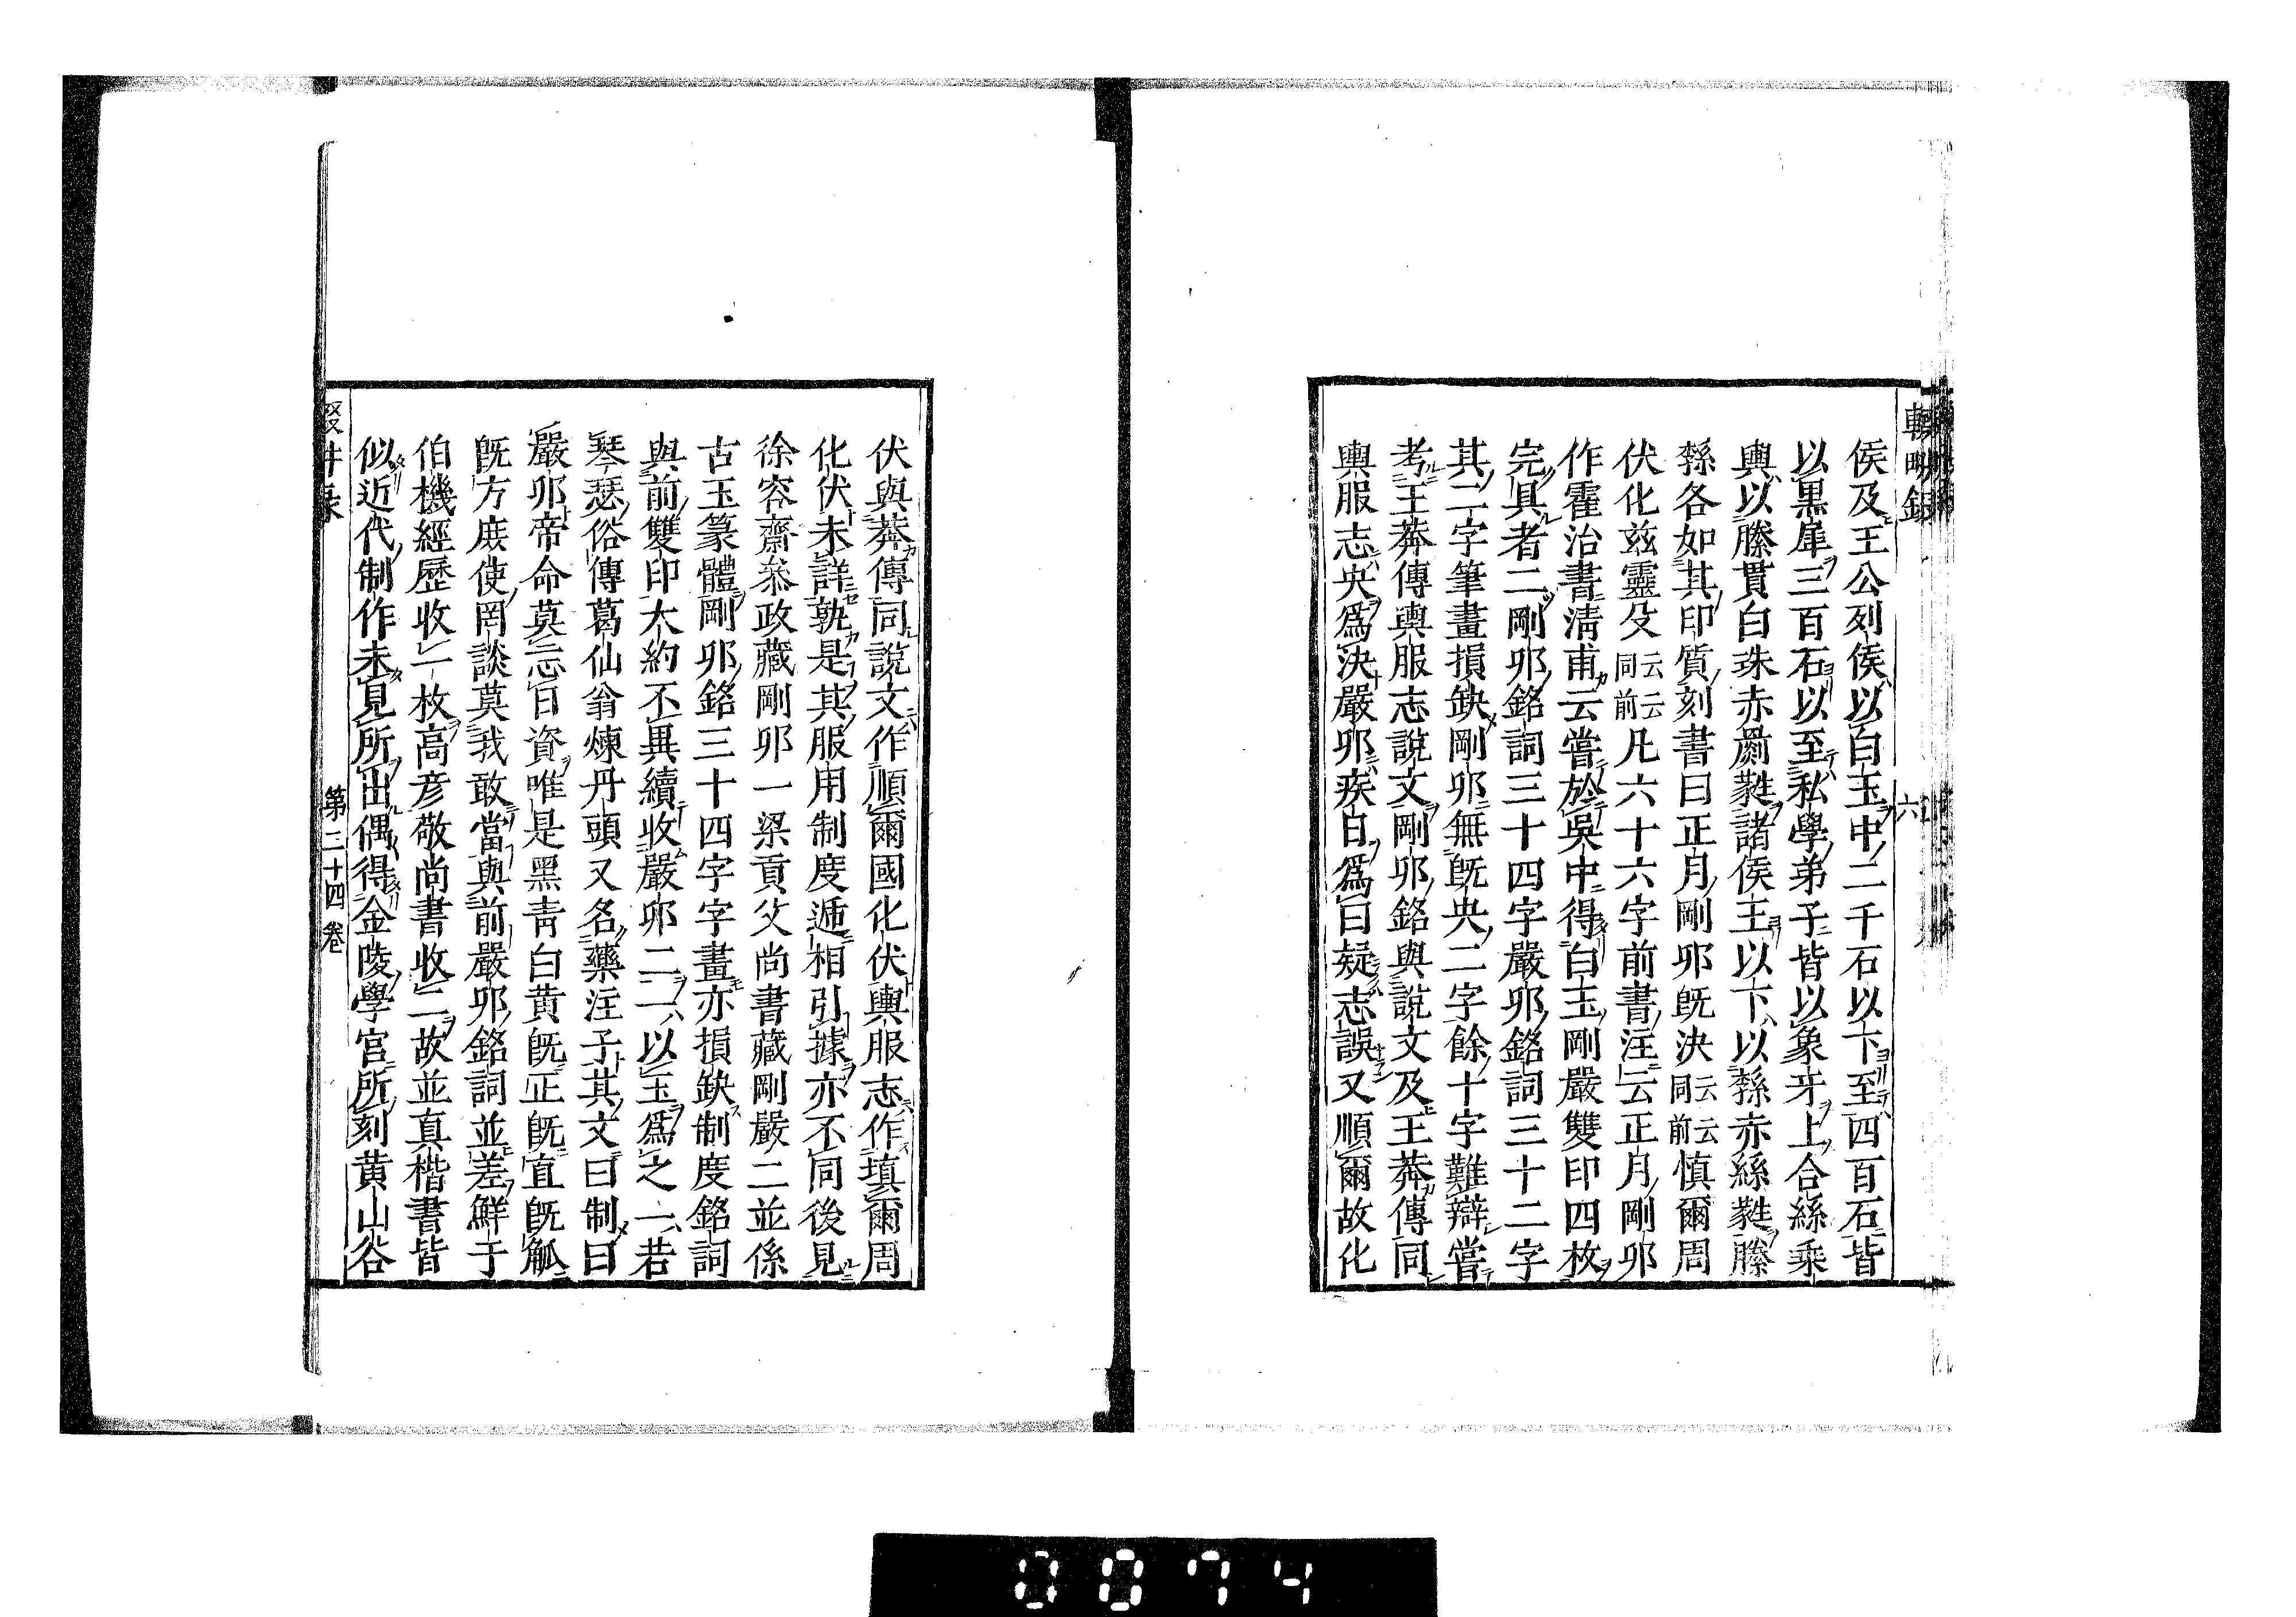 侯及王公列侯以白玉中二千石以下至四百石皆
以黒犀三百石以至私學弟子皆以象牙上合絲乘
輿以縢貫白珠赤罽蕤諸侯王以下以綔赤絲蕤縢
綔各如其印質刻書曰正月剛卯既決云云同前慎爾周
伏化玆靈殳云云同前凡六十六字前書注云正月剛卯
作霍治書淸甫云嘗於吳中得白玉剛嚴雙印四枚
完具者二剛卯銘詞三十四字嚴卯銘詞三十二字
其二字筆畫損缺剛卯無既央二字餘十字難辯嘗
考王莽傳輿服志說文剛卯銘與說文及王莽傳同
輿服志央爲決嚴卯疾日爲曰疑志誤又順爾故化
伏與莽傳同說文作順爾國化伏輿服志作填爾周
化伏未詳孰是其服用制度逓相引據亦不同後見
徐容齋叅政藏剛卯一梁貢父尚書藏剛嚴二並係
古玉篆體剛卯銘三十四字字畫亦損缺制度銘詞
與前雙印大約不異續收嚴卯二一以玉爲之一若
琴瑟俗傳葛仙翁煉丹頭又名藥注子其文曰制曰
嚴卯帝命莫忘日資唯是黑靑白黄既正既直既觚
既方庶使罔談莫我敢當與前嚴卯銘詞並差鮮于
伯機經歷收一枚高彦敬尚書收二故並真楷書皆
似近代制作未見所出偶得金陵學宫所刻黄山谷
第二十四卷